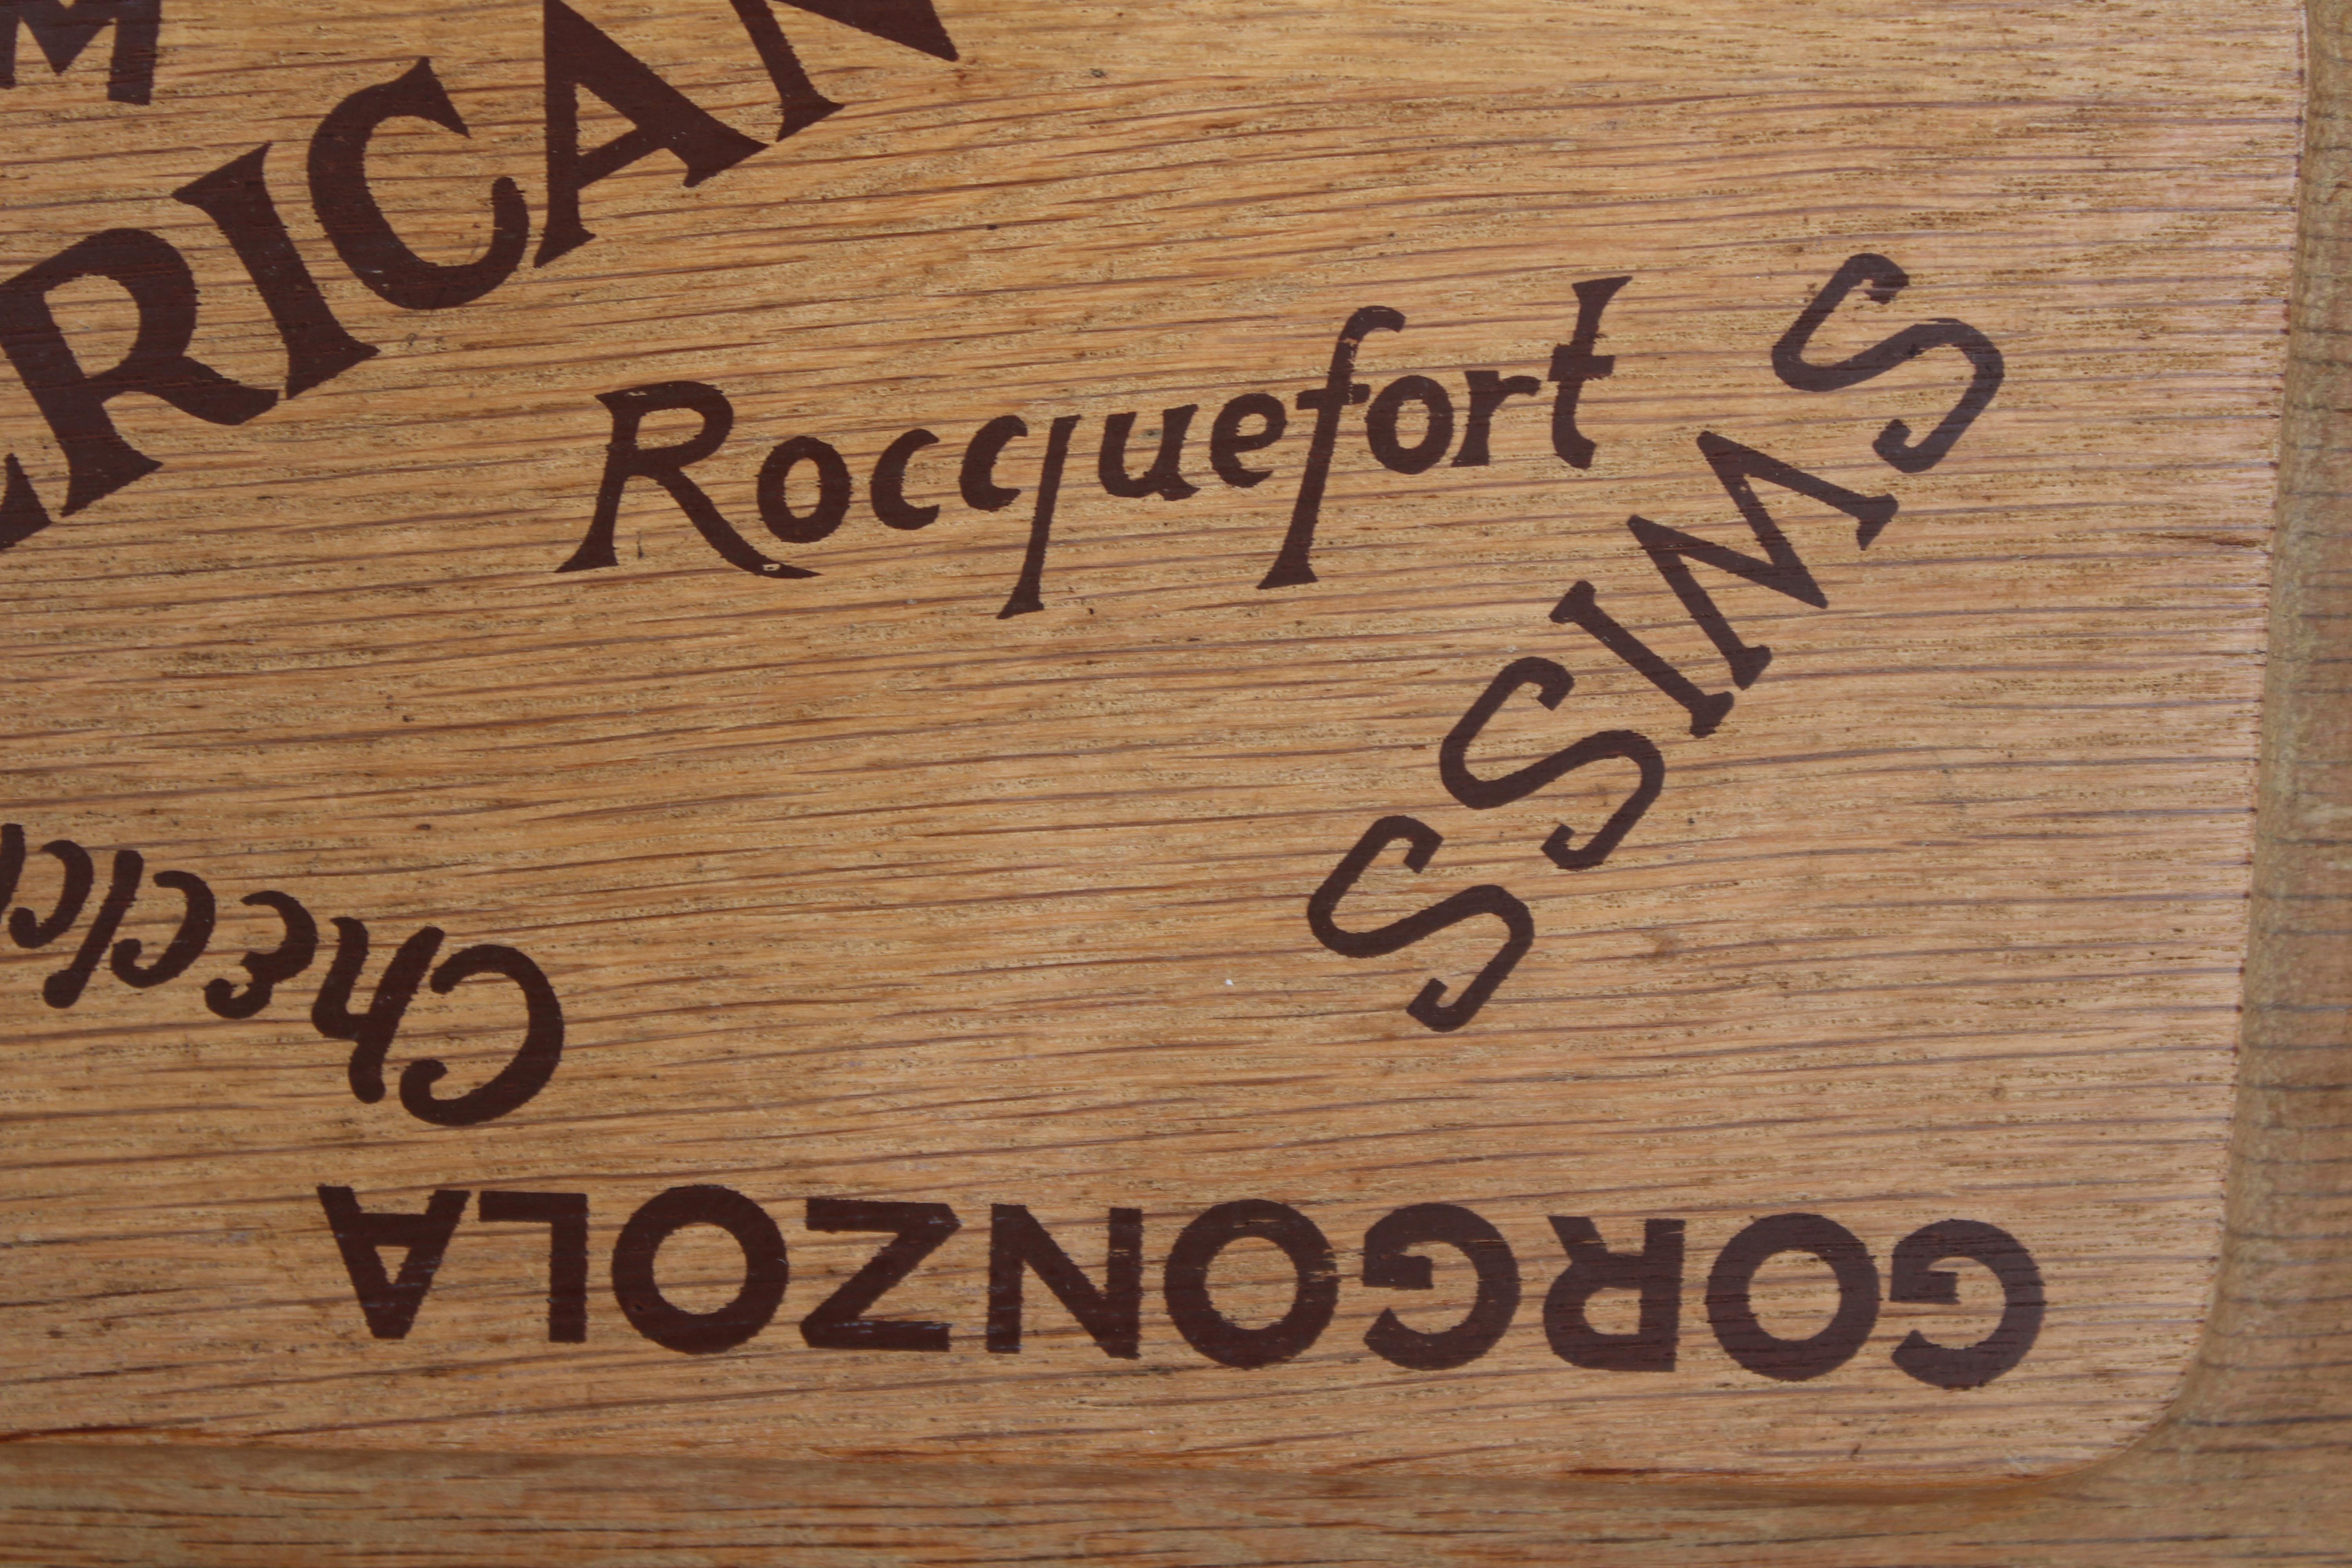 RICAN
Rocquefort
SWISS
Chedd
GORGONZOLA